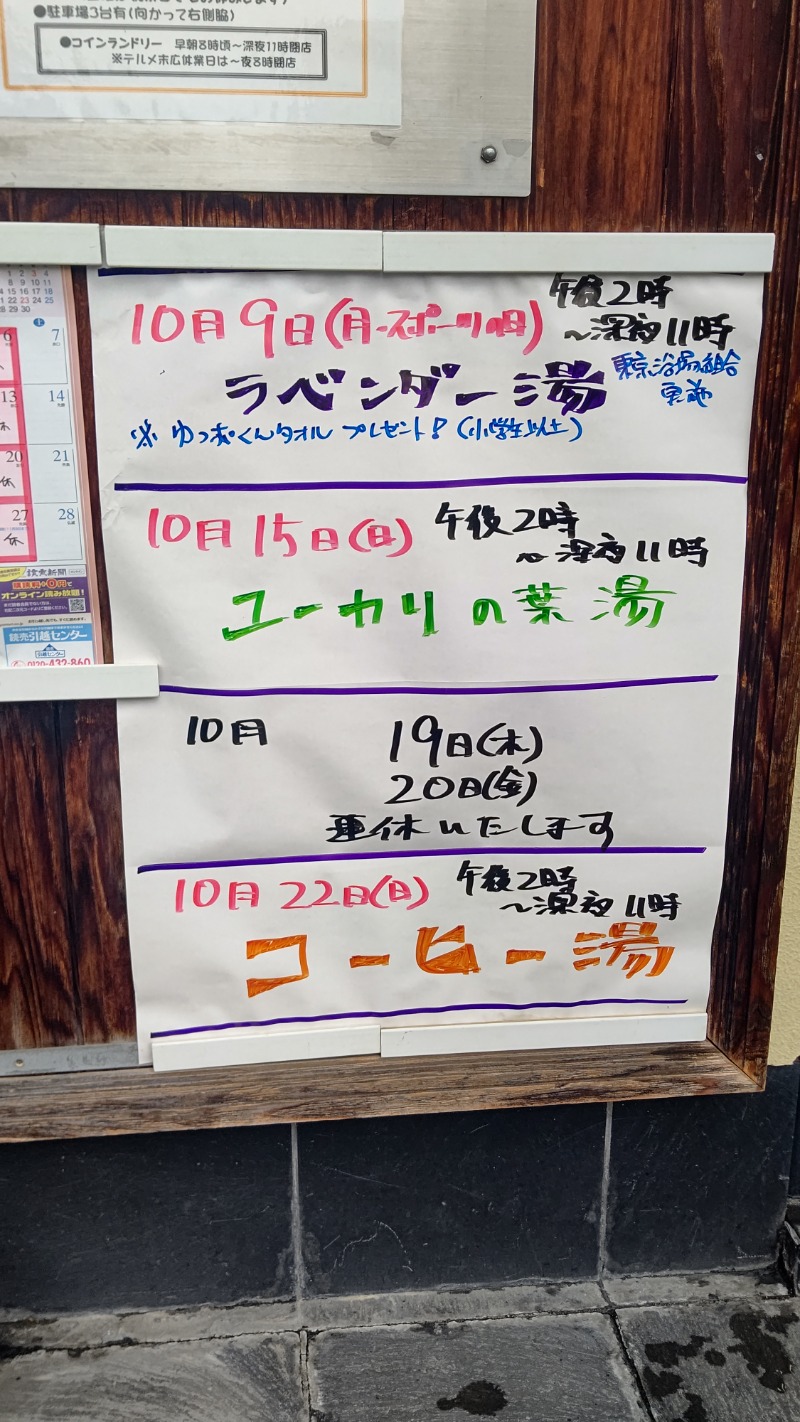 ●駐車場3台有(向かって右側脇)
●コインランドリー 早朝8時頃～深夜11時閉店
※テルメ末広休業日は～夜8時閉店
10月9日(月・スポーツの日)
午後2時
～深夜11時
ラベンダー湯
東京浴場組合
※ゆっポくんタオル プレゼント！(小学生以上)
10月15日(日)
午後2時
～深夜11時
ユーカリの葉湯
10月 19日(木)
20日(金)
連休いたします
10月22日(日)
午後2時
～深夜11時
コーヒー湯
1 2 3 4
8 9 10 11
15 16 17 18
22 23 24 25
28 29 30
土
6 7
13 14
休
20 21
休
27 28
休
読売新聞
購読料+0円で
オンライン読み放題！
読売引越センター
0120-432-860